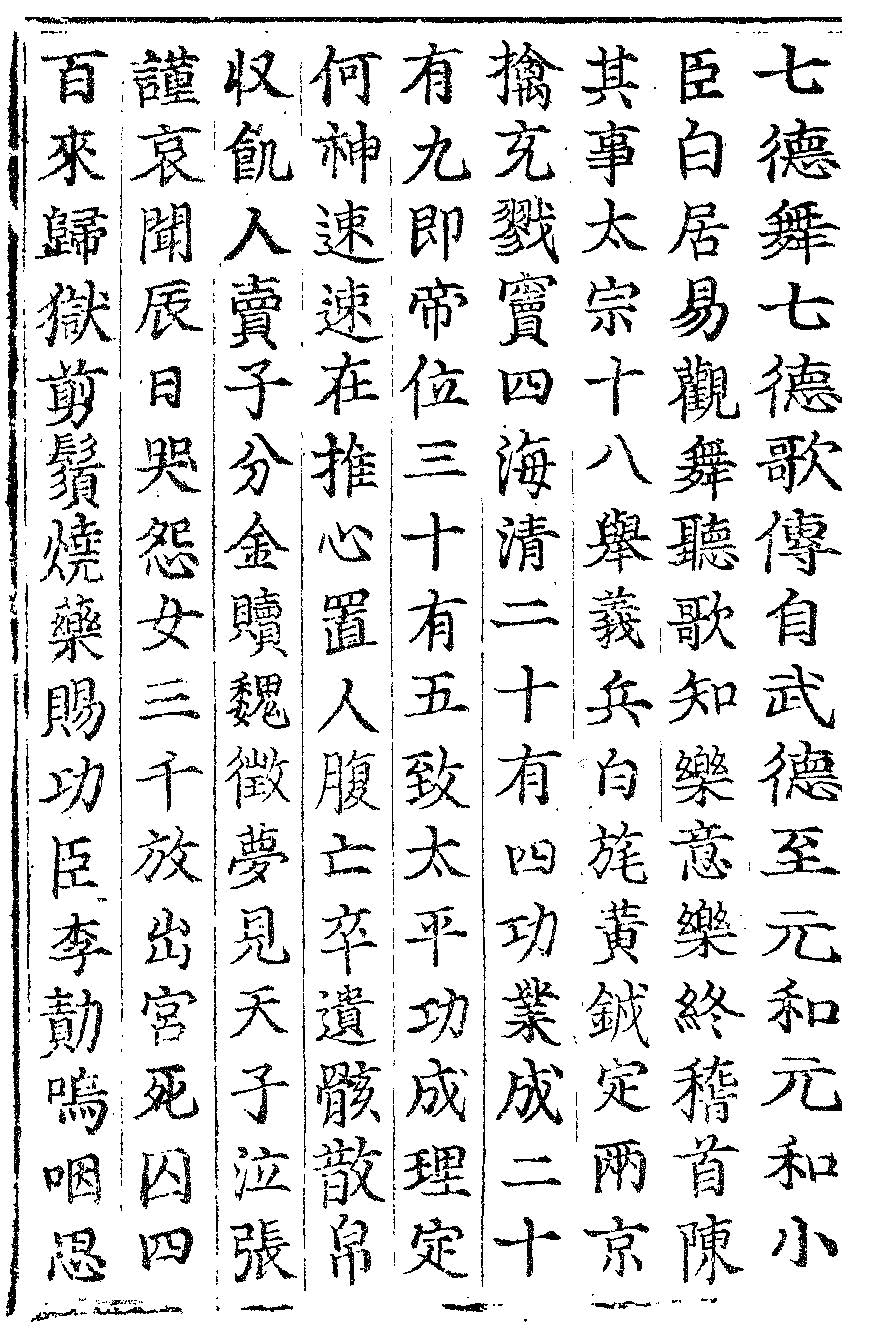 七德舞七德歌傳自武德至元和元和小
臣白居易觀舞聽歌知樂意樂終稽首陳
其事太宗十八舉義兵白旄黃鉞定兩京
擒充戮竇四海清二十有四功業成二十
有九即帝位三十有五致太平功成理定
何神速速在推心置人腹亡卒遺骸散帛
収飢人賣子分金贖魏徵夢見天子泣張
謹哀聞辰日哭怨女三千放出宮死囚四
百來歸獄剪鬚燒藥賜功臣李勣嗚咽思